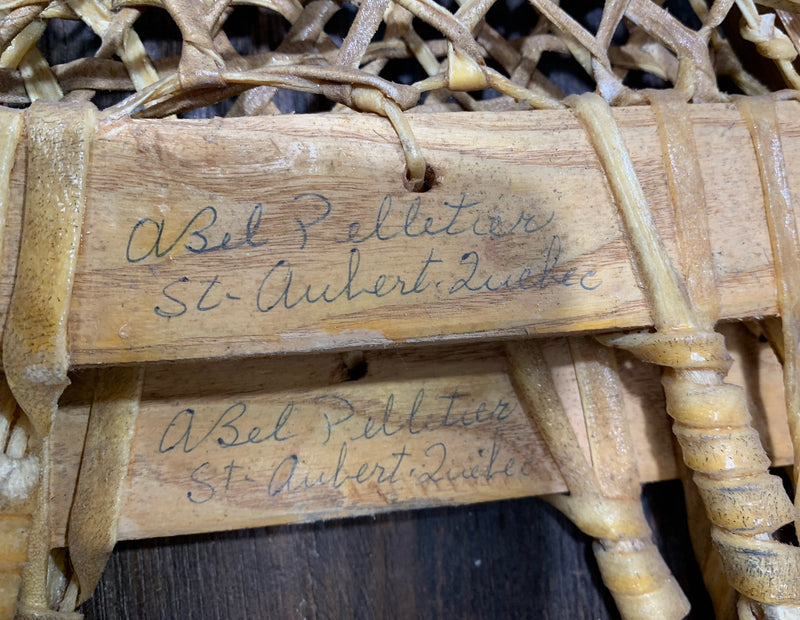 ABel Pelletier
St-Aubert. Québec
ABel Pelletier
St-Aubert. Québec